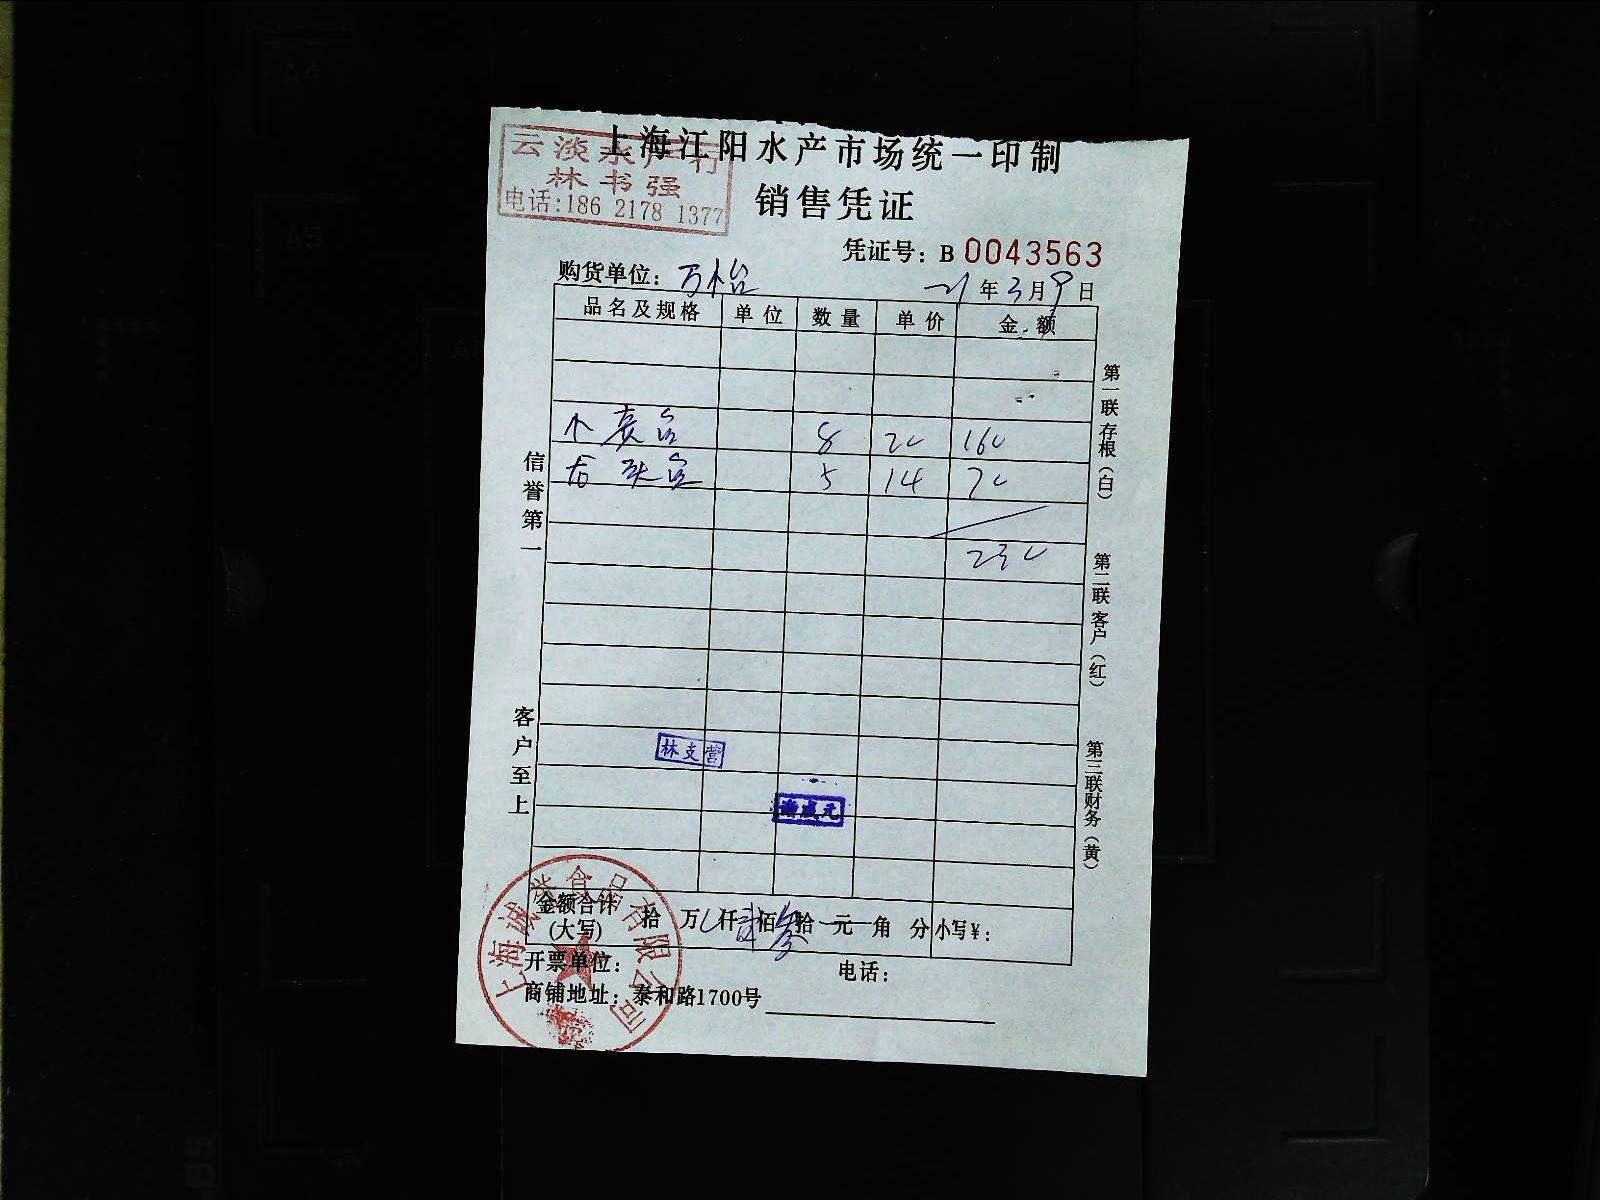 云淡水产行
林书强
电话:186 2178 1377
上海江阳水产市场统一印制
销售凭证
凭证号: B 0043563
购货单位: 万怡
21 年 3 月 9 日
品名及规格 单位 数量 单价 金额
8 20 160
5 14 70
230
信誉第一
客户至上
第一联存根(白)
第二联客户(红)
第三联财务(黄)
林支营
金额合计(大写) 拾 万 仟 贰 佰 叁 拾 元 角 分 小写¥:
开票单位: 电话:
商铺地址: 泰和路1700号
食品有限公司